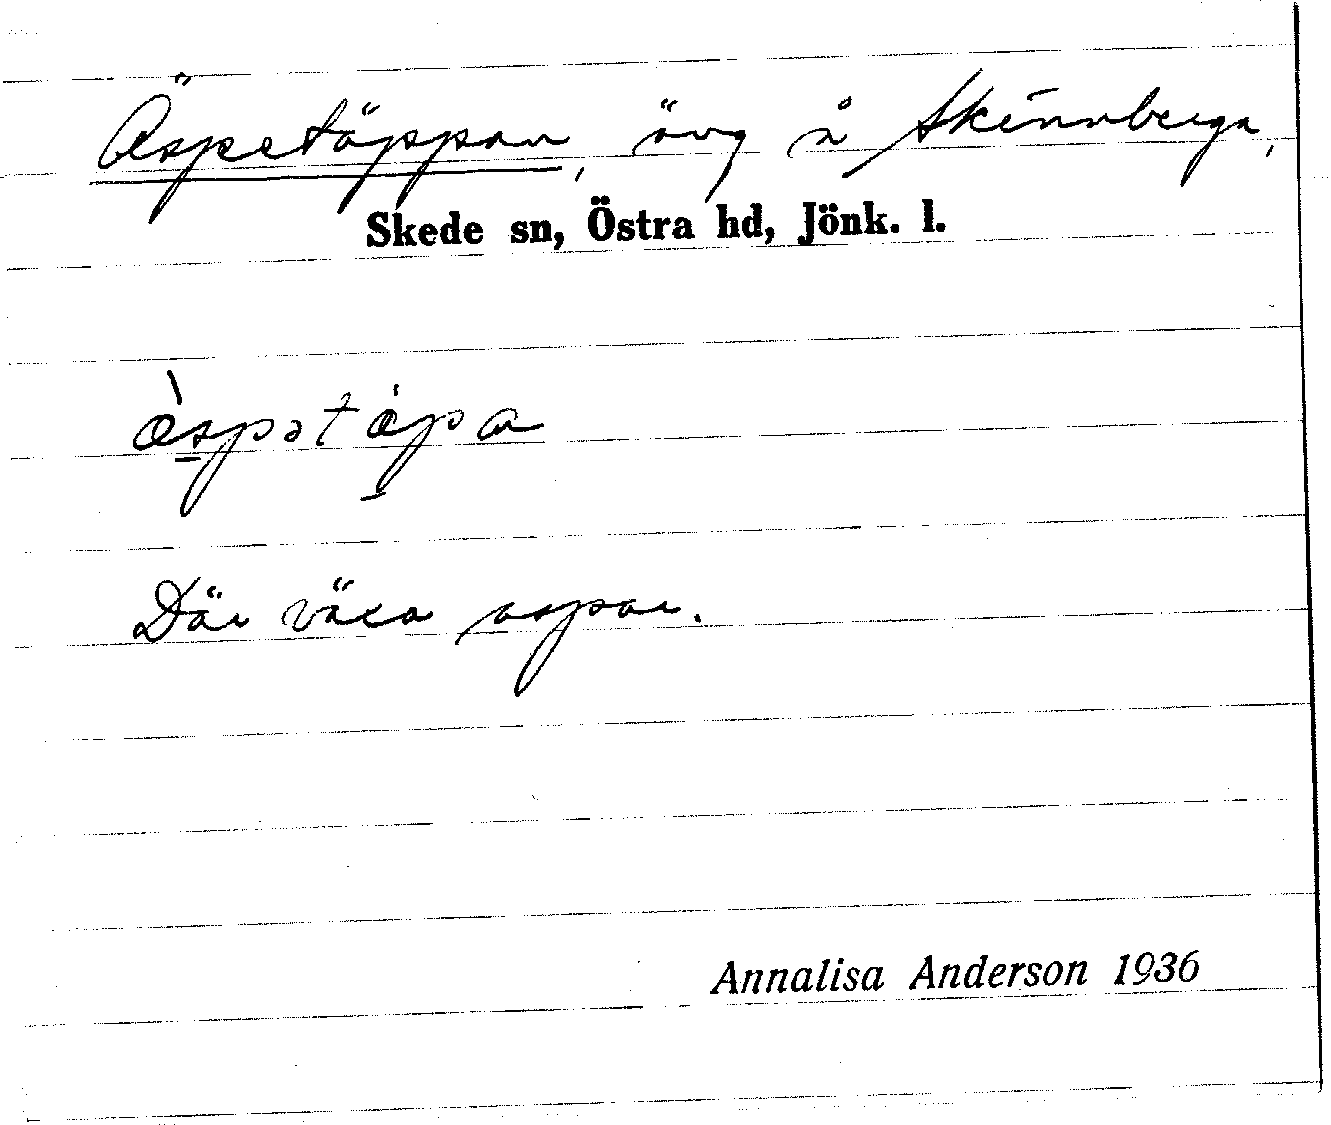 Äspetäppan, äng å Skinnberga,
Skede sn, Östra hd, Jönk. l.
æ̀spətæ̀pa
Där växa aspar.
Annalisa Anderson 1936